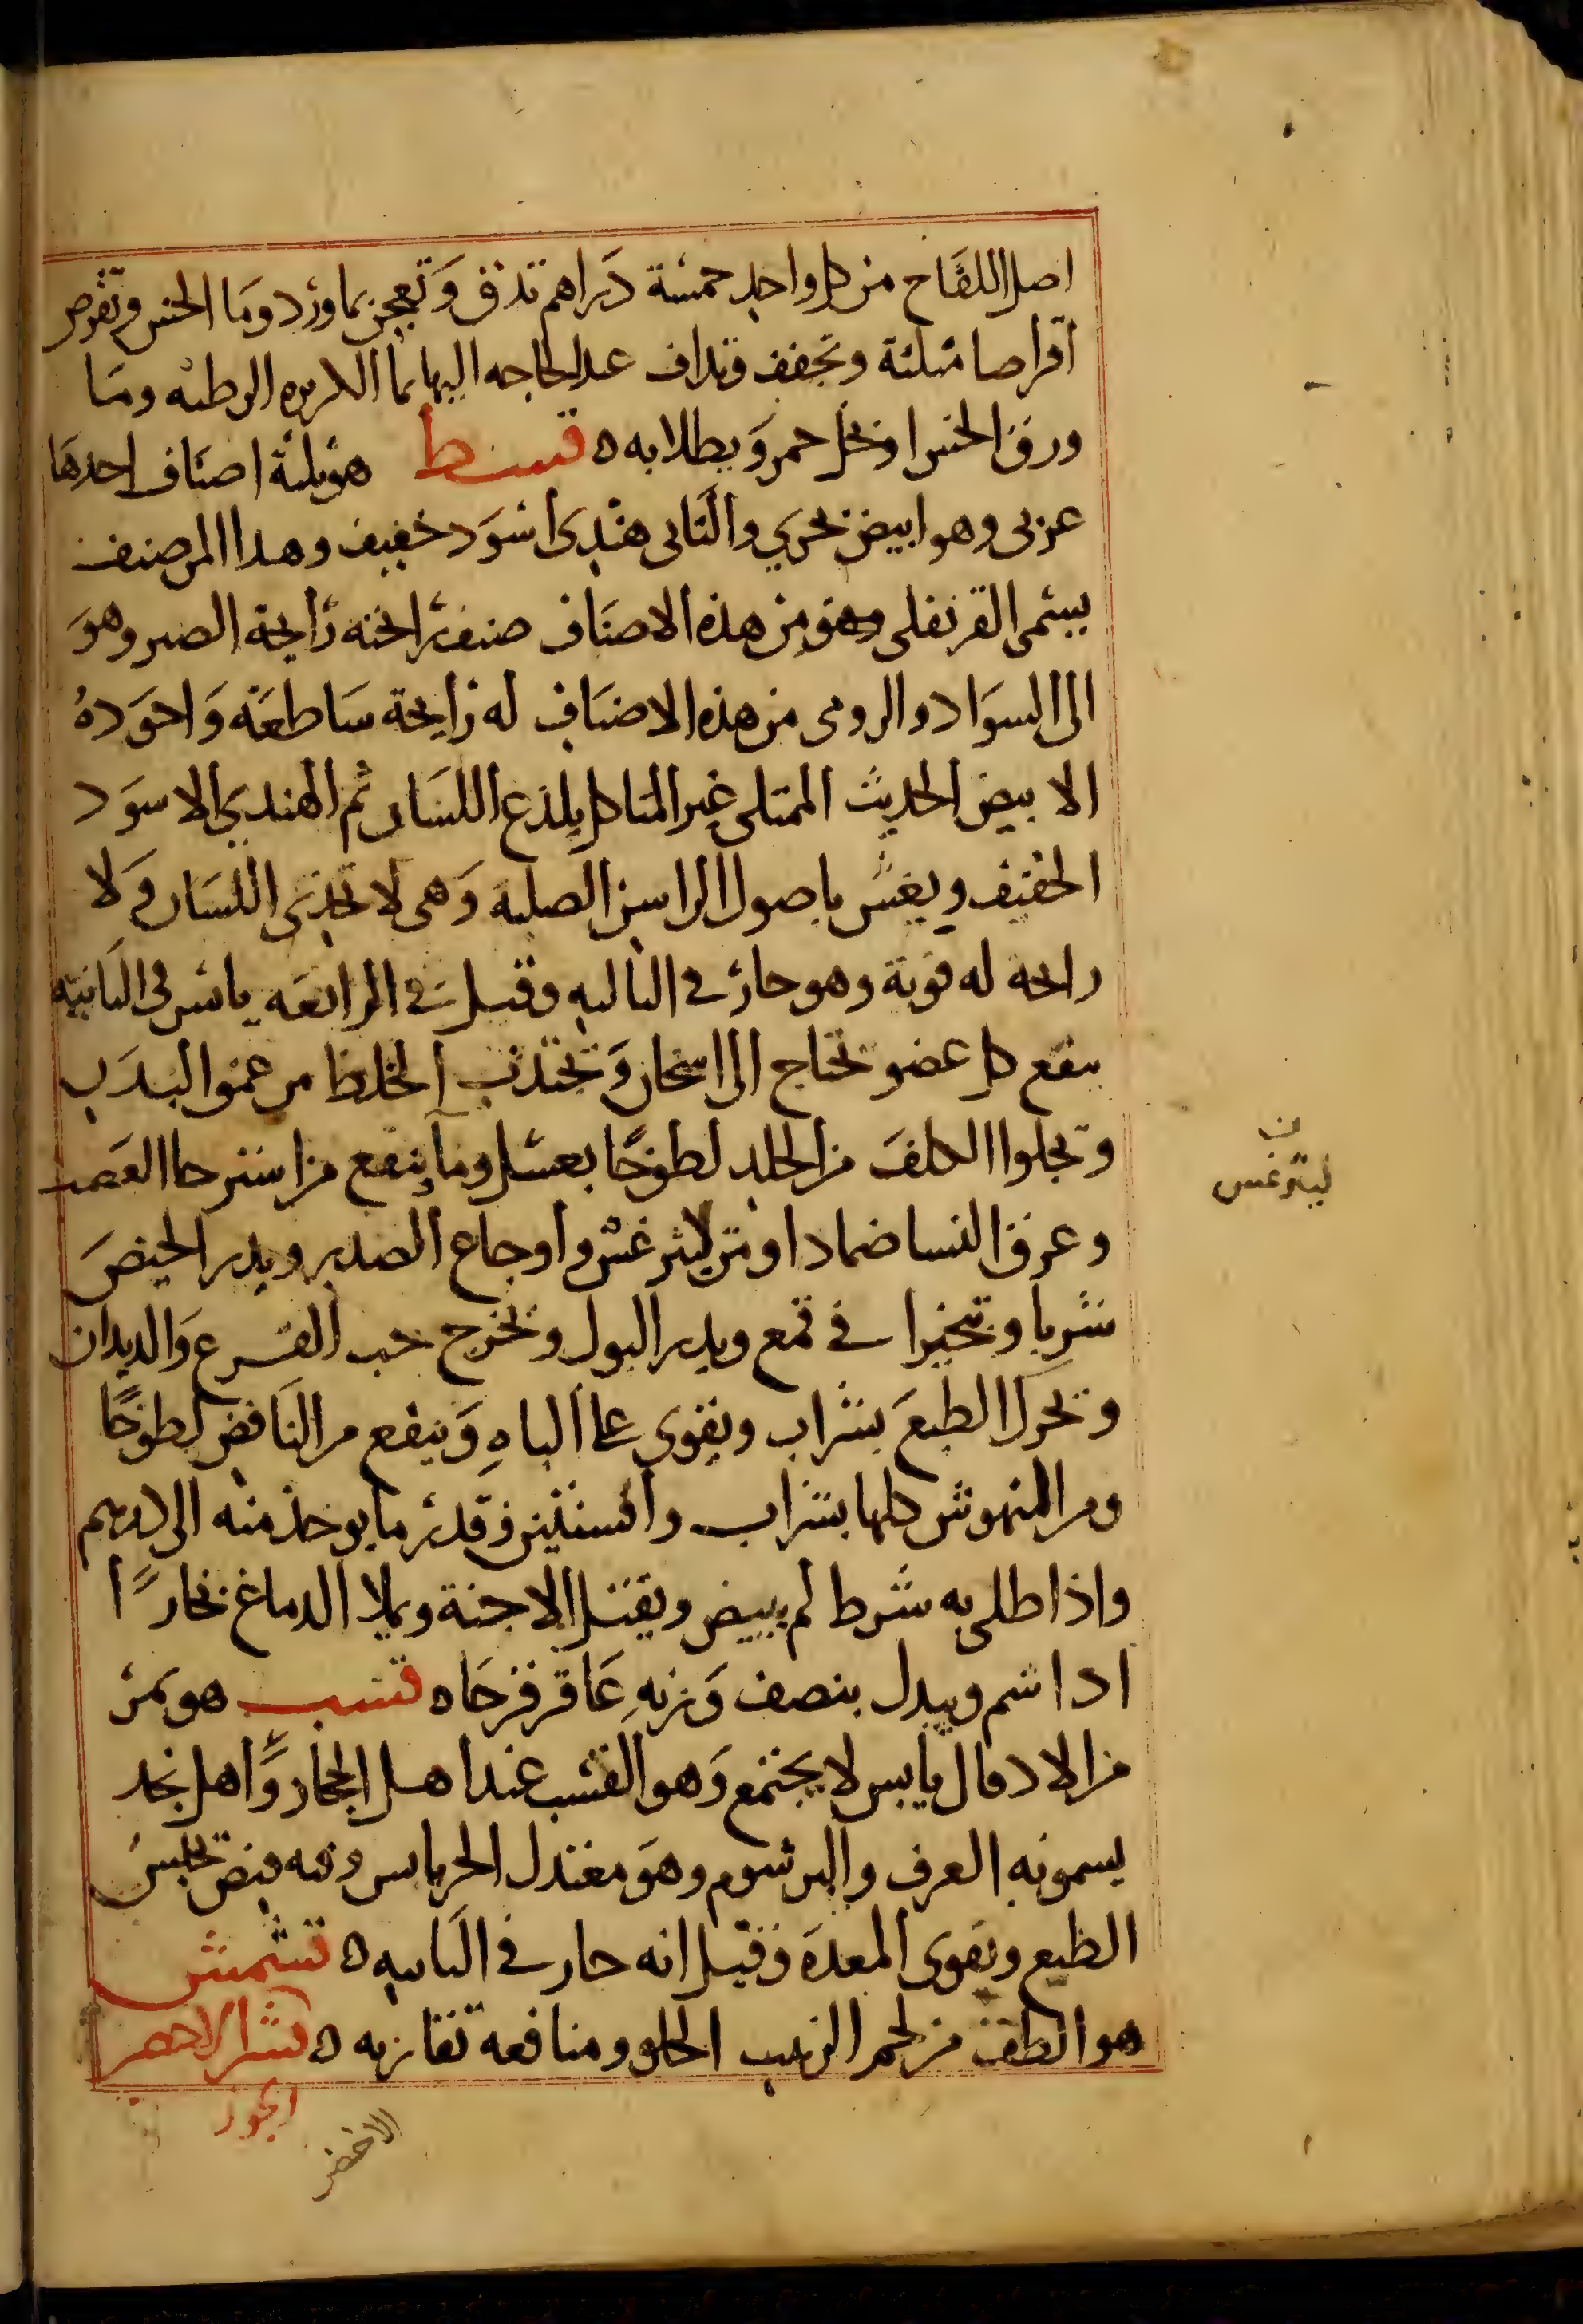 اصل اللفاح من كل واحد خمسة دراهم تدق وتعجن بماورد وما الخس وتقرص
اقراصا مثلثة وتجفف وتداف عند الحاجه اليها بما الكزبره الرطبه وما
ورق الخس او بخل خمر ويطلا به ه قسط هو ثلثة اصناف احدها
عربى وهو ابيض بحري والثانى هندى اسود خفيف وهذا المر صنف
يسمى القرنفلى وهو من هذه الاصناف صنف رائحته رايحة الصبر وهو
الى السواد والرومى من هذه الاصناف له رايحة ساطعة واجوده
الابيض الحديث الممتلى غير المتاكل يلذع اللسان ثم الهندي الاسود
الخفيف ويغش باصول الراسن الصلبة وهى لا تحذى اللسان ولا
رايحه له قوية وهو حار في الثالثه وقيل في الرابعه يابس فى الثانيه
ينفع كل عضو يحتاج الى اسخان ويجتذب الخلط من عمق البدن
ويجلوا الكلف من الجلد لطوخا بعسل وما وينفع من استرخا العصب
وعرق النسا ضمادا ومن ليثرغس واوجاع الصدر ويدر الحيض
شربا وتبخيرا في قمع ويدر البول ويخرج حب القرع والديدان
ويحرك الطبع بشراب ويقوى على الباه وينفع من النافض لطوخا
ومن النهوش كلها بشراب وافسنتين وقدر ما يوخذ منه الى درهم
واذا طلى به شرط لم يبيض ويقتل الاجنة ويملا الدماغ بخارا
اذا شم ويبدل بنصف وزنه عاقرقرحا ه قسب هو تمر
من الادقال يابس لا يجتمع وهو القشب عند اهل الحجاز واهل نجد
يسمونه العرف والبرشوم وهو معتدل الحر يابس وفيه قبض يحبس
الطبع ويقوى المعده وقيل انه حار في الثانيه ه قشمش
هو الطف من لحم الزبيب الحلو ومنافعه تقاربه ه قشر الاخضر
الجوز
الاخضر
ن
ليثرغس